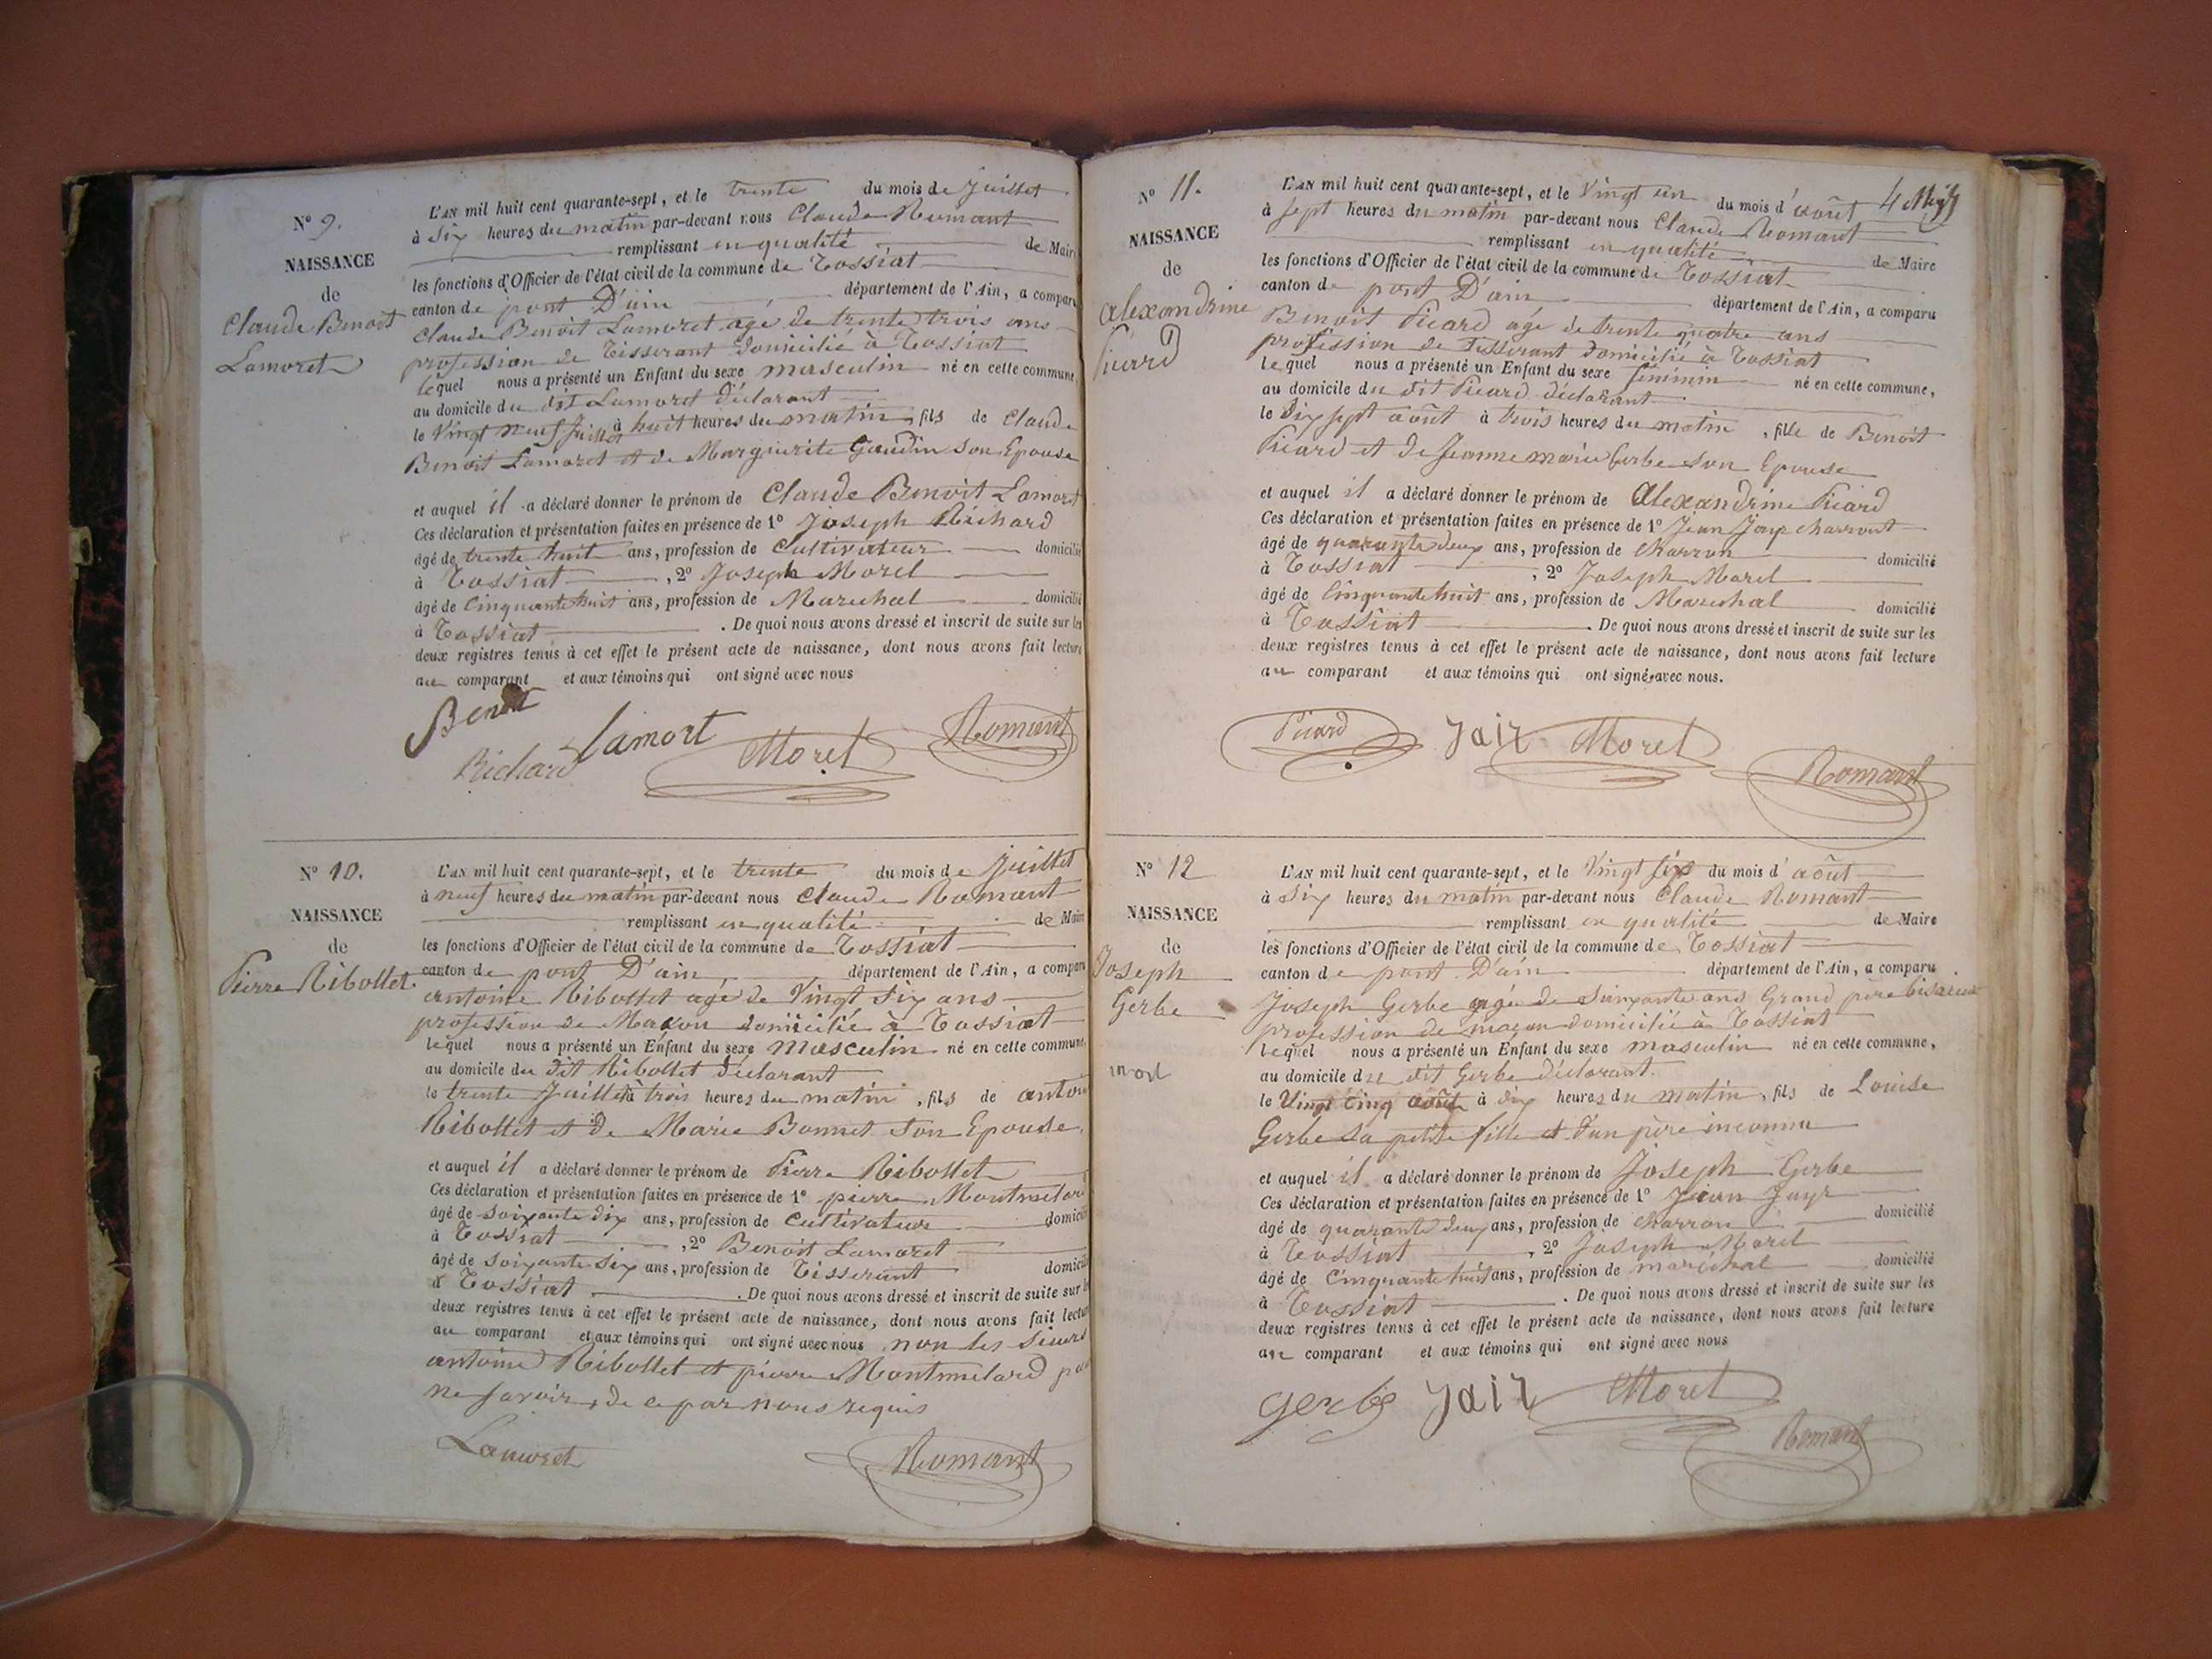 N° 9.
NAISSANCE
de
Claude Benoit
Lamoret
L'AN mil huit cent quarante-sept, et le trente du mois de Juillet
à Six heures du matin par-devant nous Claude Romant
remplissant en qualité de Maire
les fonctions d'Officier de l'état civil de la commune de Tossiat
canton de pont D'ain département de l'Ain, a comparu
Claude Benoit Lamoret agé de trente trois ans
profession de Tisserant domicilié à Tossiat
lequel nous a présenté un Enfant du sexe masculin né en cette commune
au domicile du dit Lamoret déclarant
le Vingt neuf Juillet à huit heures du matin, fils de Claude
Benoit Lamoret et de Marguerite Gaudin son Epouse
et auquel il a déclaré donner le prénom de Claude Benoit Lamoret
Ces déclaration et présentation faites en présence de 1° Joseph Richard
âgé de trente huit ans, profession de Cultivateur domicilié
à Tossiat, 2° Joseph Morel
âgé de Cinquante huit ans, profession de Marechal domicilié
à Tossiat. De quoi nous avons dressé et inscrit de suite sur les
deux registres tenus à cet effet le présent acte de naissance, dont nous avons fait lecture
au comparant et aux témoins qui ont signé avec nous
Benoit
Lamort
Richard
Morel
Romant
N° 10.
NAISSANCE
de
Pierre Ribollet.
L'AN mil huit cent quarante-sept, et le trente du mois de Juillet
à neuf heures du matin par-devant nous Claude Romant
remplissant en qualité de Maire
les fonctions d'Officier de l'état civil de la commune de Tossiat
canton de pont D'ain département de l'Ain, a comparu
antoine Ribollet agé de Vingt Six ans
profession de Maxon domicilié à Tossiat
lequel nous a présenté un Enfant du sexe Masculin né en cette commune
au domicile du dit Ribollet déclarant
le trente Juillet à trois heures du matin, fils de antoine
Ribollet et de Marie Bonnet son Epouse
et auquel il a déclaré donner le prénom de Pierre Ribollet
Ces déclaration et présentation faites en présence de 1° pierre Montmilard
âgé de Soixante dix ans, profession de Cultivateur domicilié
à Tossiat, 2° Benoit Lamoret
âgé de Soixante Six ans, profession de Tisserant domicilié
à Tossiat. De quoi nous avons dressé et inscrit de suite sur les
deux registres tenus à cet effet le présent acte de naissance, dont nous avons fait lecture
au comparant et aux témoins qui ont signé avec nous non les Sieurs
antoine Ribollet et pierre Montmilard pour
ne savoir, de ce par nous requis
Lamoret
Romant
N° 11.
NAISSANCE
de
alexandrine
Picard
L'AN mil huit cent quarante-sept, et le Vingt un du mois d'août
à Sept heures du matin par-devant nous Claude Romant
remplissant en qualité de Maire
les fonctions d'Officier de l'état civil de la commune de Tossiat
canton de pont D'ain département de l'Ain, a comparu
Benoit Picard agé de trente quatre ans
profession de Tisserant domicilié à Tossiat
lequel nous a présenté un Enfant du sexe féminin né en cette commune,
au domicile du dit Picard déclarant
le Dix sept août à trois heures du matin, fille de Benoit
Picard et de Jeanne marie Gerbe son Epouse
et auquel il a déclaré donner le prénom de Alexandrine Picard
Ces déclaration et présentation faites en présence de 1° Jean
âgé de quarante deux ans, profession de Charron domicilié
à Tossiat, 2° Joseph Morel
âgé de Cinquante huit ans, profession de Marechal domicilié
à Tossiat. De quoi nous avons dressé et inscrit de suite sur les
deux registres tenus à cet effet le présent acte de naissance, dont nous avons fait lecture
au comparant et aux témoins qui ont signé avec nous.
Picard
Jair
Morel
Romant
N° 12
NAISSANCE
de
Joseph
Gerbe
mort
L'AN mil huit cent quarante-sept, et le Vingt Six du mois d'août
à Six heures du matin par-devant nous Claude Romant
remplissant en qualité de Maire
les fonctions d'Officier de l'état civil de la commune de Tossiat
canton de pont D'ain département de l'Ain, a comparu
Joseph Gerbe agé de Soixante ans Grand père bisaieul
profession de maçon domicilié à Tossiat
lequel nous a présenté un Enfant du sexe masculin né en cette commune,
au domicile du dit Gerbe déclarant.
le Vingt Cinq août à dix heures du matin, fils de Louise
Gerbe sa petite fille et d'un père inconnu
et auquel il a déclaré donner le prénom de Joseph Gerbe
Ces déclaration et présentation faites en présence de 1° Jean Jayr
âgé de quarante deux ans, profession de charron domicilié
à Tossiat, 2° Joseph Morel
âgé de Cinquante huit ans, profession de maréchal domicilié
à Tossiat. De quoi nous avons dressé et inscrit de suite sur les
deux registres tenus à cet effet le présent acte de naissance, dont nous avons fait lecture
au comparant et aux témoins qui ont signé avec nous
Gerbe
Jair
Morel
Romant